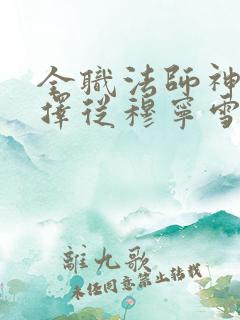 全職法師神
擇從穆寧雪
離九歌
未經同意禁止轉載